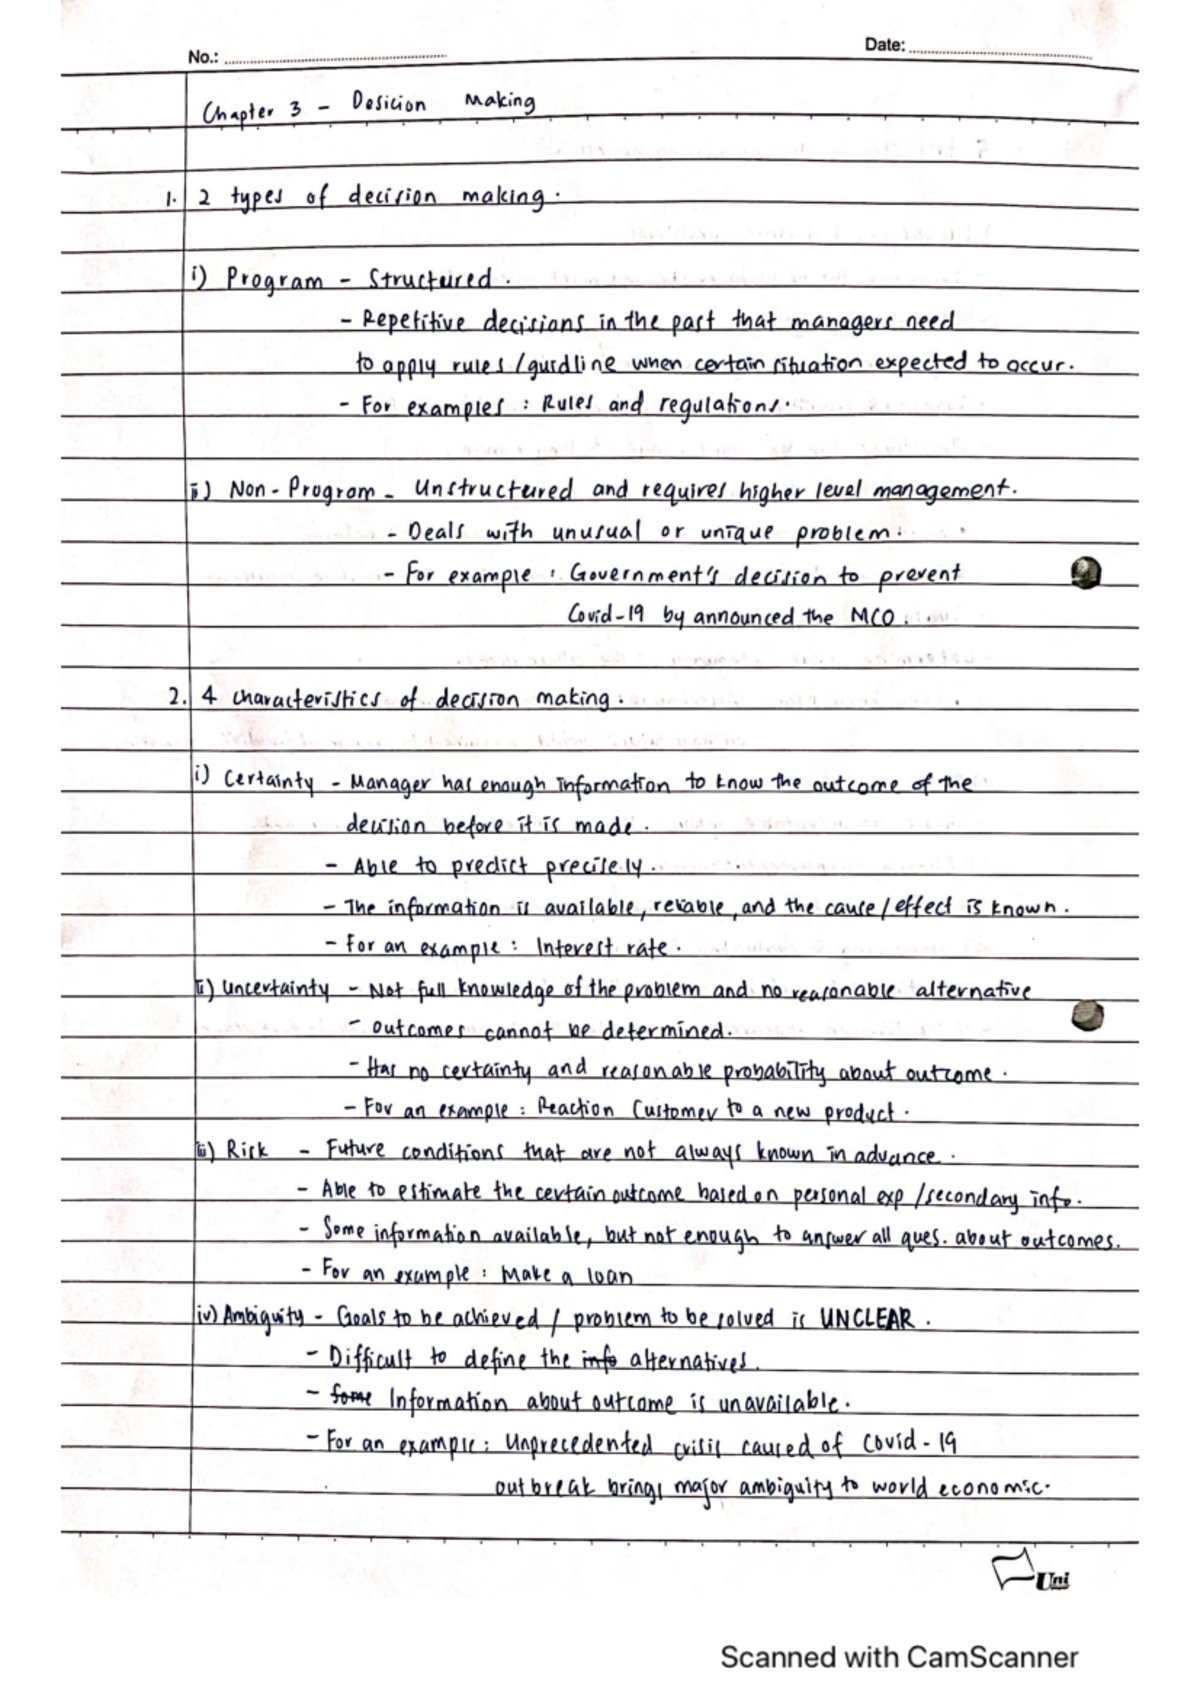 No.:
Date:
Chapter 3 - Desicion Making
1. 2 types of decision making.
i) Program - Structured.
- Repetitive decisions in the past that managers need
to apply rules /guidline when certain situation expected to occur.
- For examples : Rules and regulations.
ii) Non-Program - Unstructured and requires higher level management.
- Deals with unusual or unique problem.
- For example : Government's decision to prevent
Covid-19 by announced the MCO.
2. 4 characteristics of decision making.
i) Certainty - Manager has enough information to know the outcome of the
decision before it is made.
- Able to predict precisely.
- The information is available, reliable, and the cause/effect is known.
- For an example : Interest rate.
ii) Uncertainty - Not full knowledge of the problem and no reasonable alternative
- outcomes cannot be determined.
- Has no certainty and reasonable probability about outcome.
- For an example : Reaction Customer to a new product.
iii) Risk - Future conditions that are not always known in advance.
- Able to estimate the certain outcome based on personal exp /secondary info.
- Some information available, but not enough to answer all ques. about outcomes.
- For an example : Make a loan
iv) Ambiguity - Goals to be achieved / problem to be solved is UNCLEAR.
- Difficult to define the info alternatives.
- Some Information about outcome is unavailable.
- For an example : Unprecedented crisis caused of Covid-19
outbreak brings major ambiguity to world economic.
Uni
Scanned with CamScanner